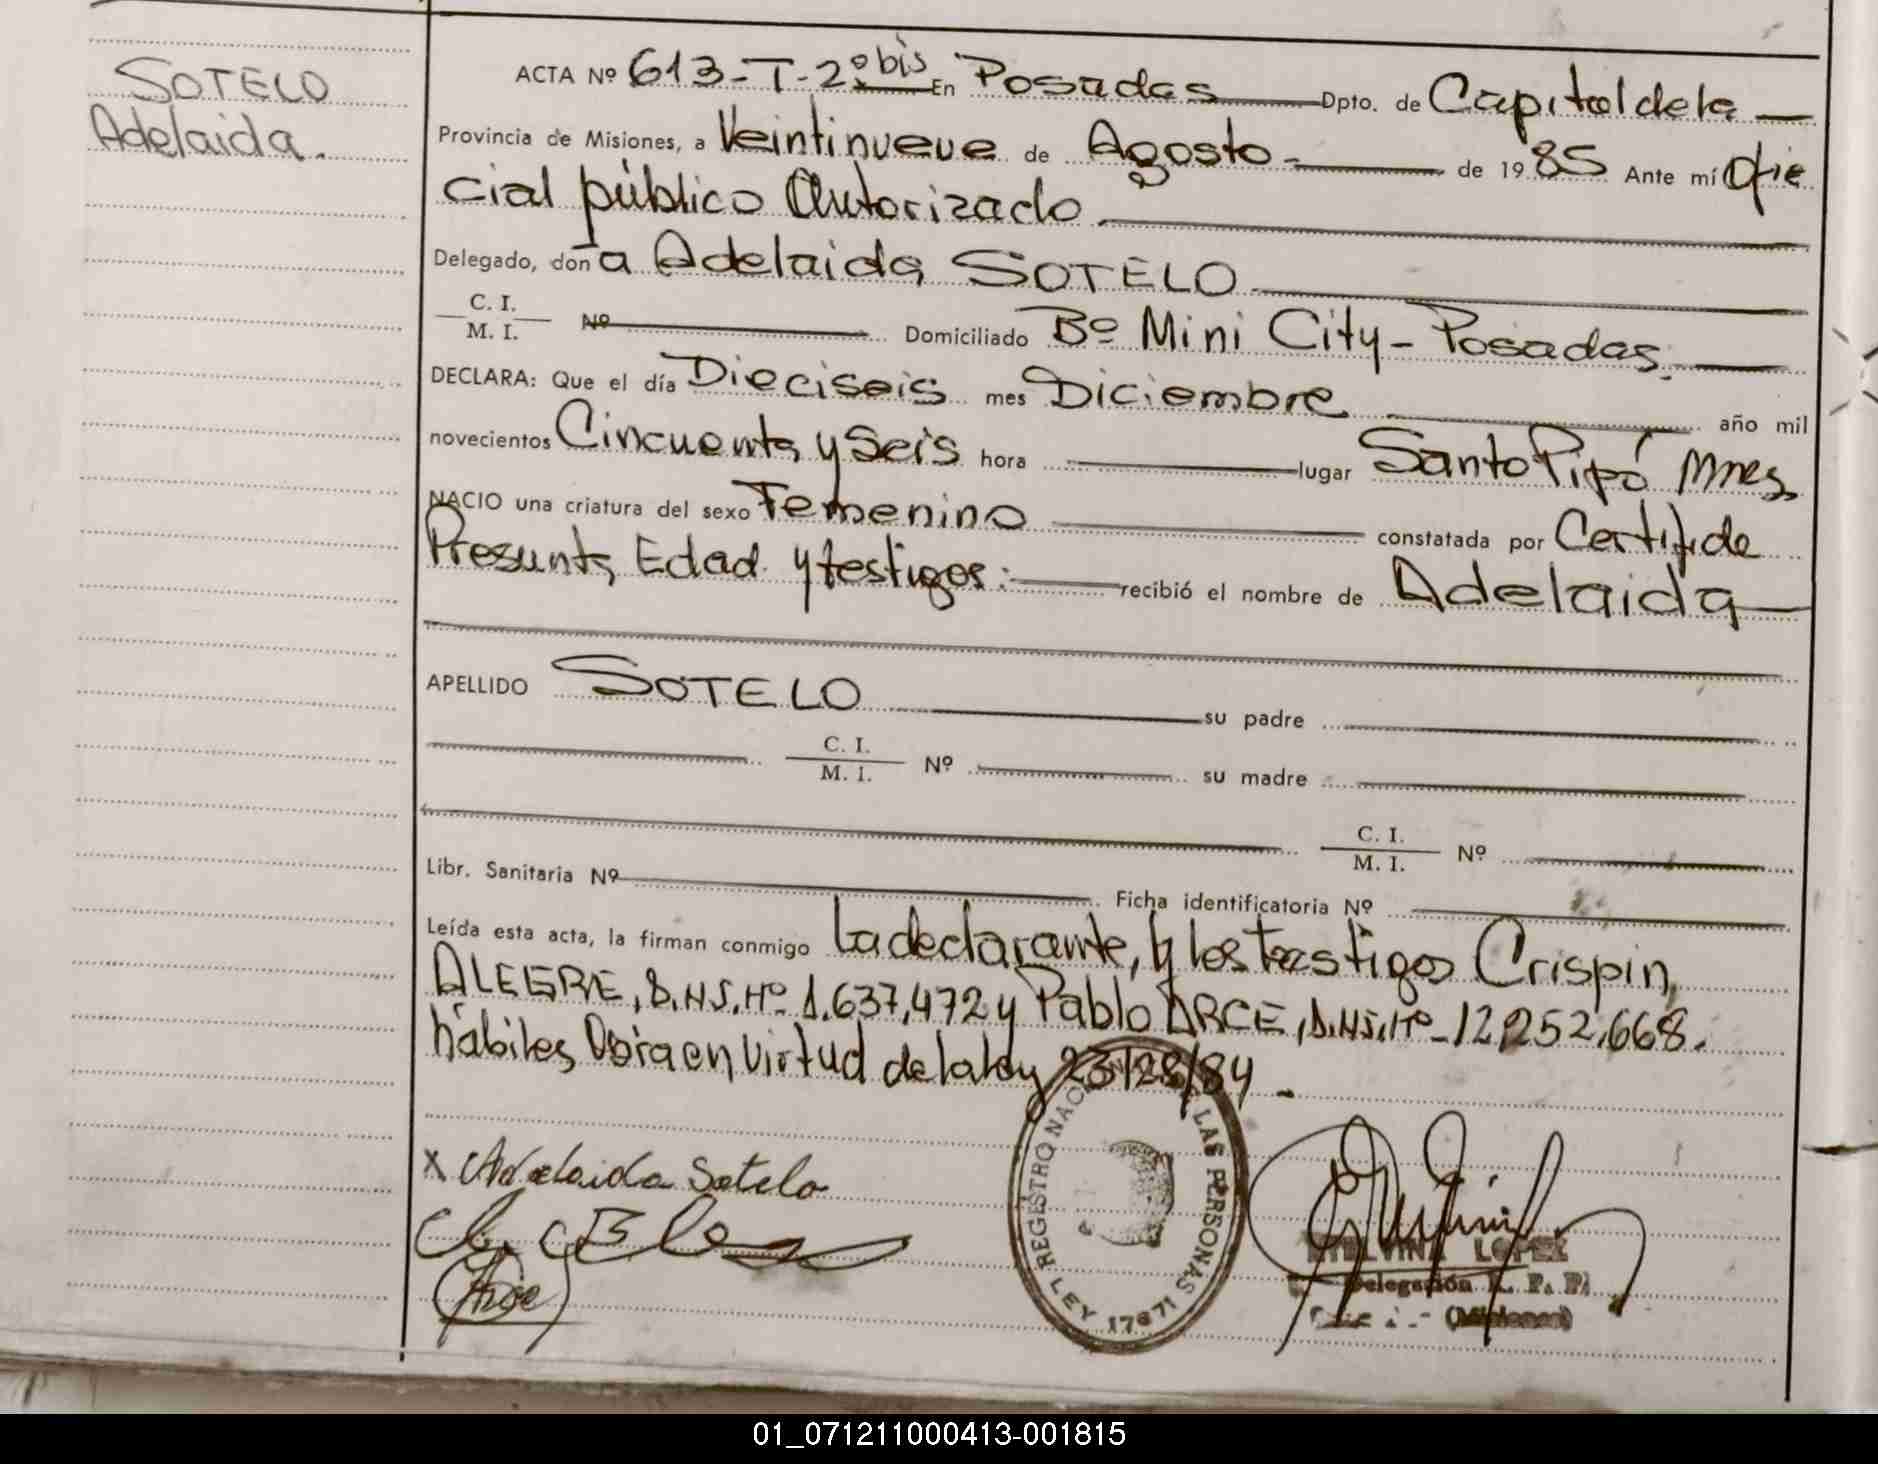 SOTELO
Adelaida.
ACTA Nº 613-T-2º bis En Posadas Dpto. de Capital de la
Provincia de Misiones, a Veintinueve de Agosto de 1985 Ante mí Ofi
cial público Autorizado
Delegado, don a Adelaida SOTELO
C. I.
M. I. Nº Domiciliado Bº Mini City - Posadas.
DECLARA: Que el día Dieciseis mes Diciembre año mil
novecientos Cincuenta y Seis hora lugar Santo Pipó Mnes
NACIO una criatura del sexo Femenino constatada por Certif. de
Presunta Edad y testigos: recibió el nombre de Adelaida
APELLIDO SOTELO su padre
C. I.
M. I. Nº su madre
C. I.
M. I. Nº
Libr. Sanitaria Nº Ficha identificatoria Nº
Leída esta acta, la firman conmigo La declarante, y los testigos Crispin
ALEGRE, Nº 1.637,472 y Pablo ARCE, Nº - 12,252,668.
hábiles, Obra en Virtud de la ley 23128/84 -
x Adelaida Sotelo
Arce
REGISTRO NACIONAL DE LAS PERSONAS
LEY 17671
LOPEZ
Delegación R. P. P.
(Misiones)
01_071211000413-001815